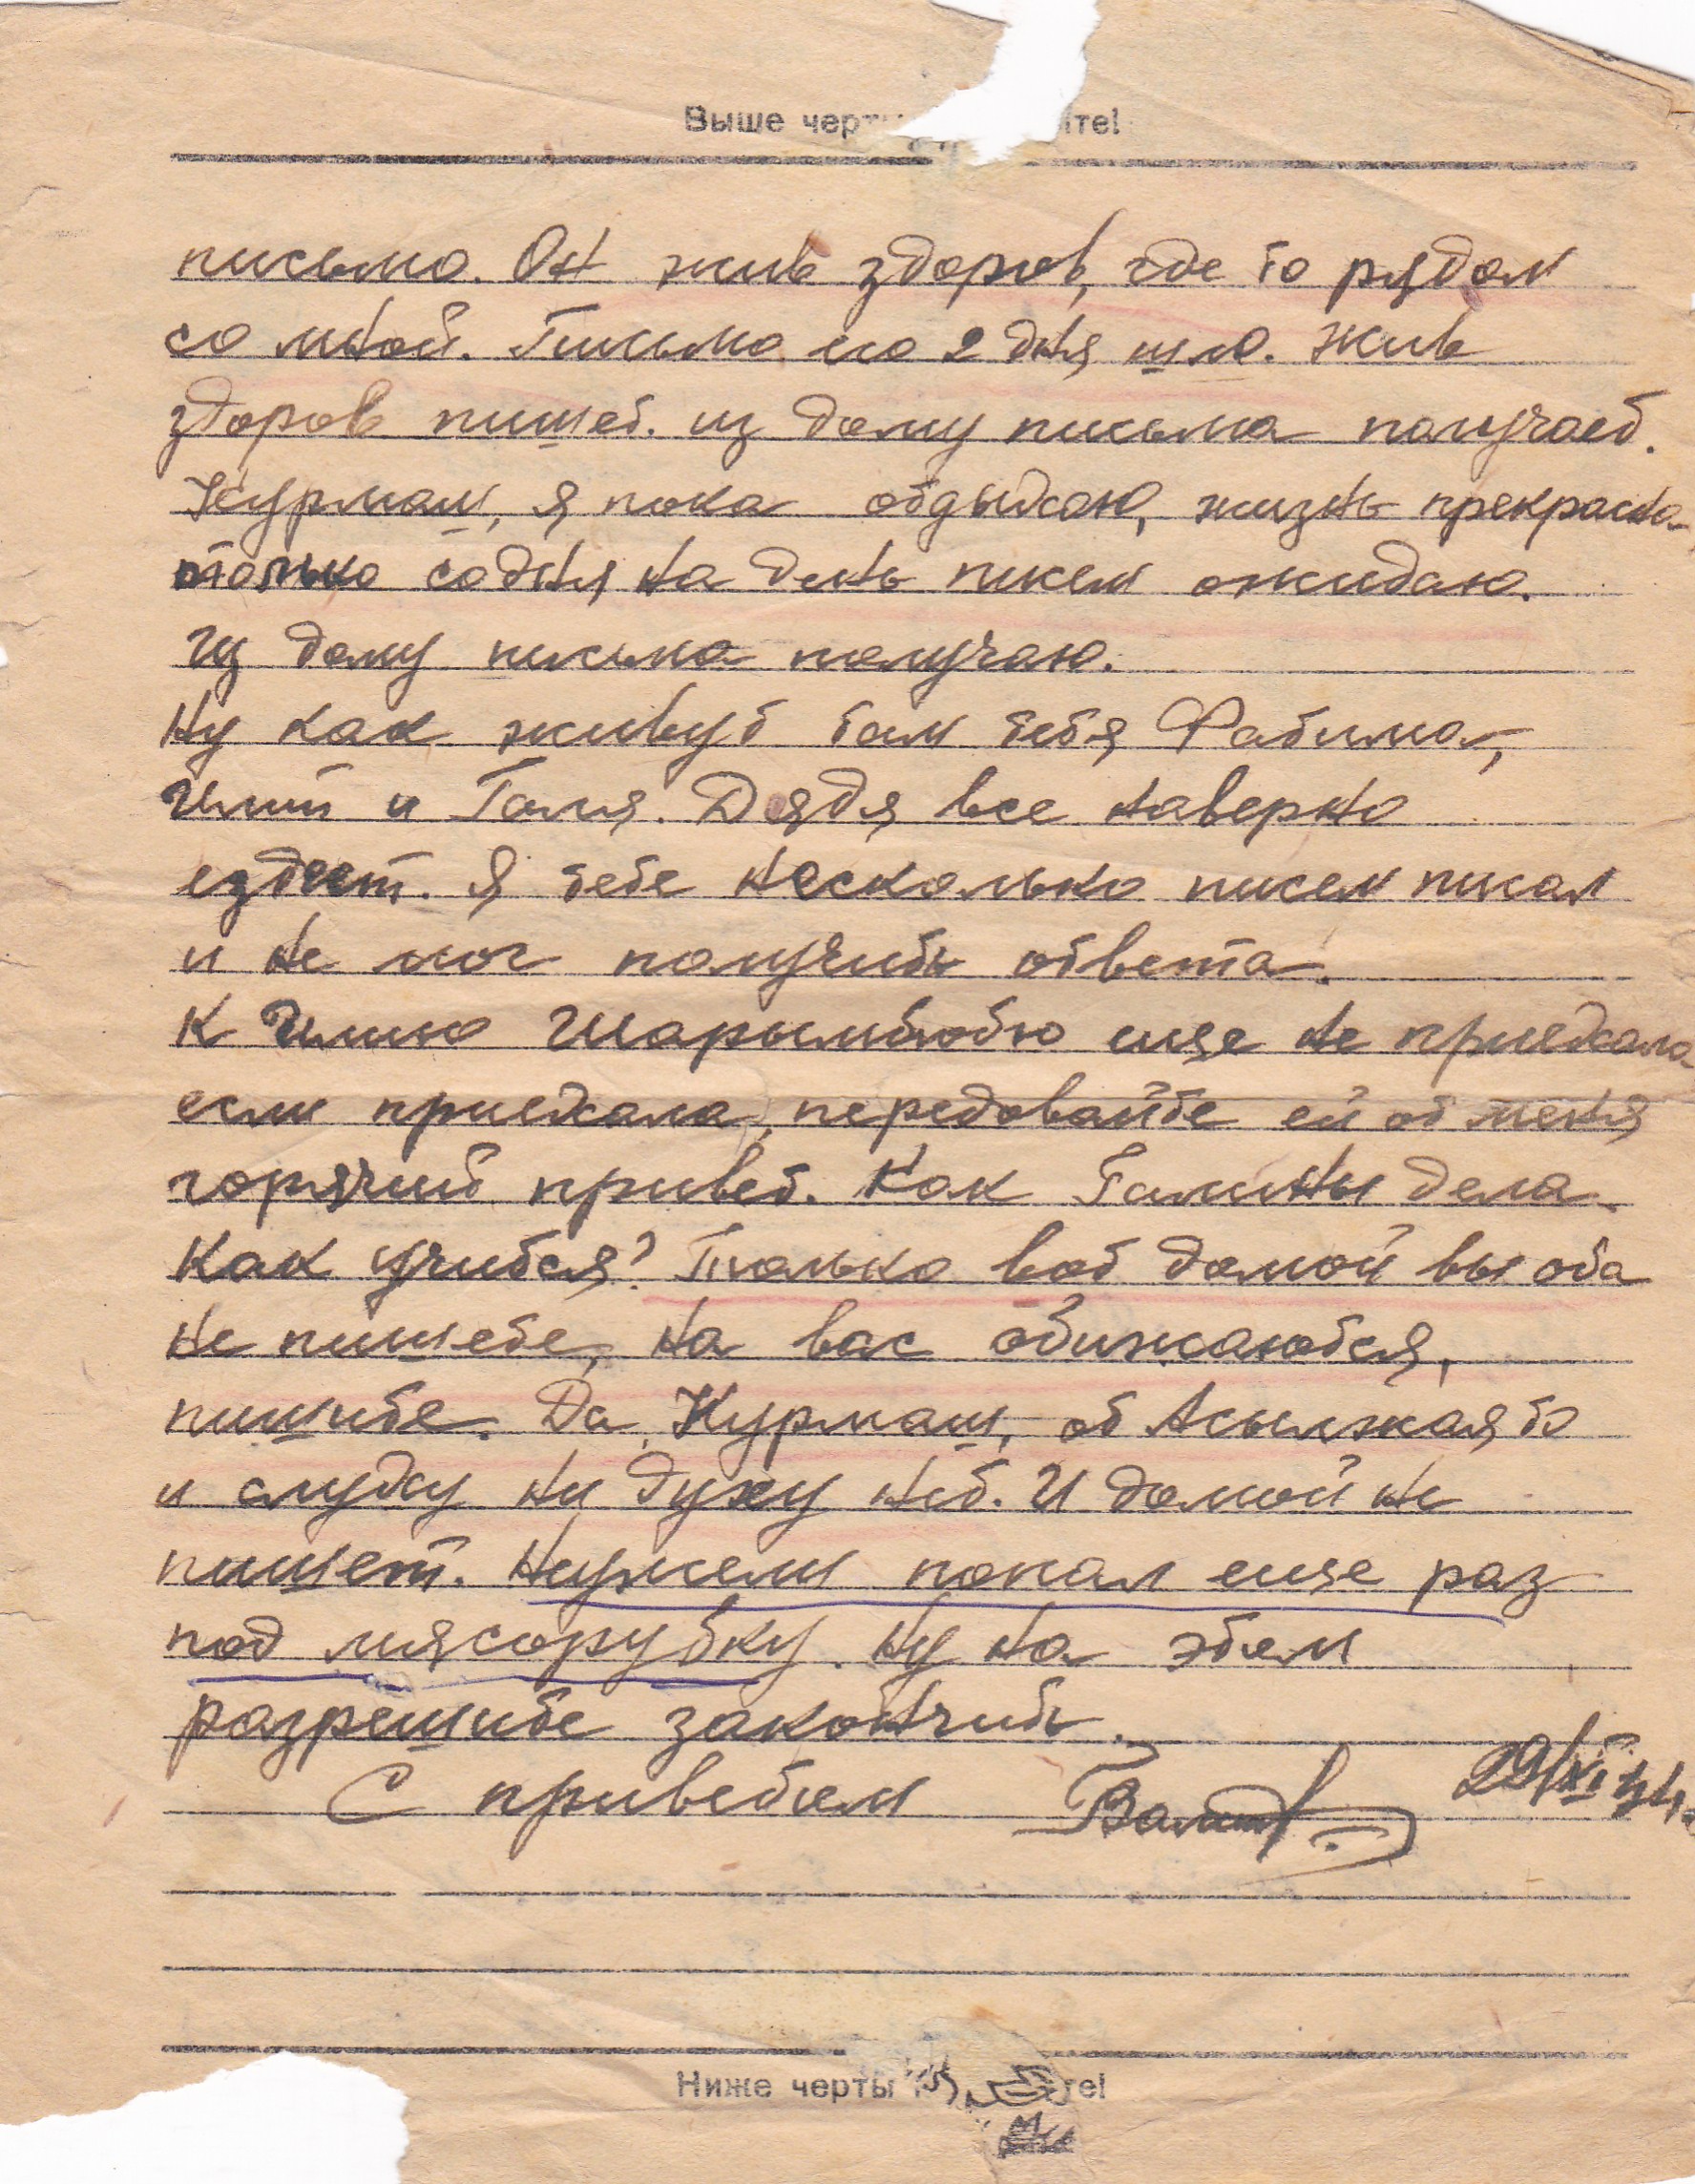 Выше черты те!
письмо. Он жив здоров, где то рядом
со мной. Письмо его 2 дня шло. Жив
здоров пишет. из дому письма получает.
Курмаш, я пока отдыхаю, жизнь прекрасна
только со дня на день писем ожидаю.
Из дому письма получаю.
Ну как живут там тебя Фатима,
и Галя. Дядя все наверно
ездеет. Я тебе несколько писем писал
и не мог получить ответа.
К еще не приежала
если приежала, передовайте ей от меня
горячий привет. Как Галины дела.
Как учится? Только вот домой вы оба
не пишете, на вас обижаются,
пишите. Да, Курмаш, от Асылжая то
и слуху ни духу нет. И домой не
пишет. Неужели попал еще раз
под мясорубку. Ну на этом
разрешите закончить.
С приветом 29/XI 44.
Ниже черты те!